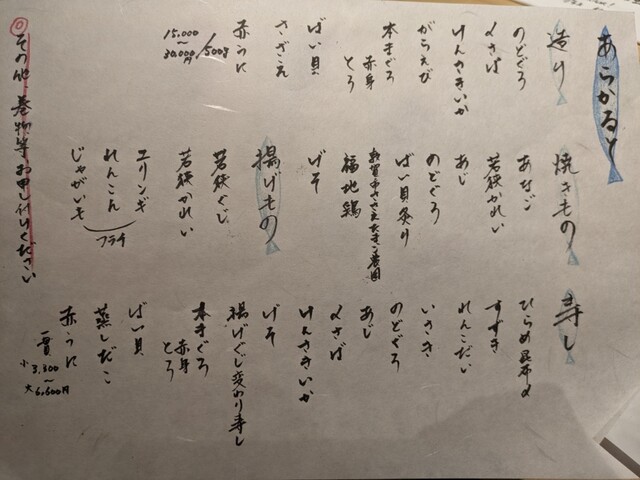 あらかると
造り
のどぐろ
〆さば
けんさきいか
がらえび
本まぐろ
赤身
とろ
ばい貝
さざえ
赤うに
15,000
〜
30,000円
/500g
焼きもの
あなご
若狭かれい
あじ
のどぐろ
ばい貝炙り
福地鶏
げそ
揚げもの
若狭ぐじ
若狭かれい
エリンギ
れんこん
じゃがいも
フライ
寿し
ひらめ昆布〆
すずき
れんこだい
いさき
のどぐろ
あじ
〆さば
けんさきいか
げそ
揚げぐじ変わり寿し
本まぐろ
赤身
とろ
ばい貝
蒸しだこ
赤うに
一貫
小 3,300
〜
大 6,600円
◎その他 巻物等お申し付けください